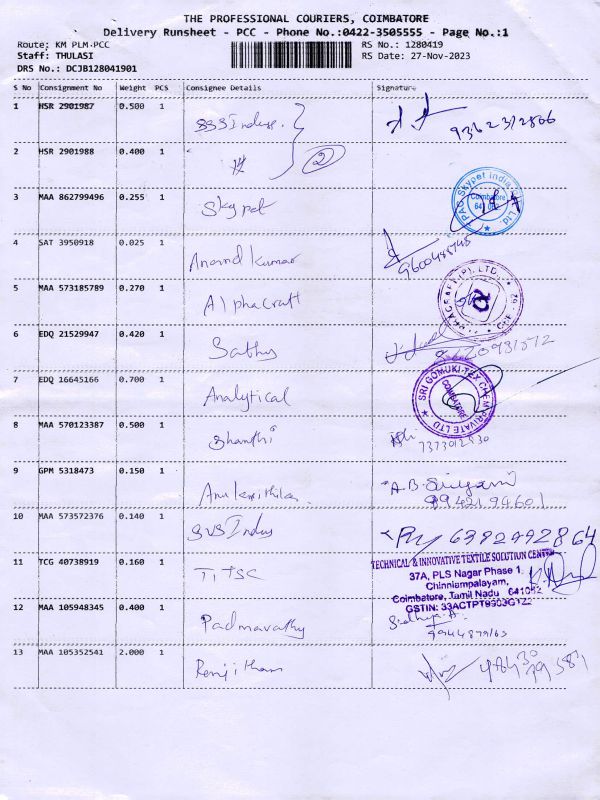 THE PROFESSIONAL COURIERS, COIMBATORE
Delivery Runsheet - PCC - Phone No.:0422-3505555 - Page No.:1
Route; KM PLM-PCC
RS No.: 1280419
Staff: THULASI
RS Date: 27-Nov-2023
DRS No.: DCJB128041901
S No Consignment No Weight PCS Consignee Details Signature
1 HSR 2901987 0.500 1
9362312866
2 HSR 2901988 0.400 1 2
3 MAA 862799496 0.255 1 Skypet
PAC Skypet India Pvt Ltd.
Coimbatore
4 SAT 3950918 0.025 1 Anand Kumar
5 MAA 573185789 0.270 1 Alphacraft
6 EDQ 21529947 0.420 1 Sathy
7 EDQ 16645166 0.700 1 Analytical
SRI GOMUKI TEX CHEM PRIVATE LTD
COIMBATORE
8 MAA 570123387 0.500 1 Shanthi
7373012830
9 GPM 5318473 0.150 1
A.B.
9942194601
10 MAA 573572376 0.140 1 SVS Indus
6382992864
11 TCG 40738919 0.160 1 TITSC
TECHNICAL & INNOVATIVE TEXTILE SOLUTION CENTRE
37A, PLS Nagar Phase 1,
Chinniampalayam,
Coimbatore, Tamil Nadu 641062
GSTIN: 33ACTPT9903G1Z2
12 MAA 105948345 0.400 1 Padmavathy
Sudhya.A.
9944879163
13 MAA 105352541 2.000 1 Renjitham